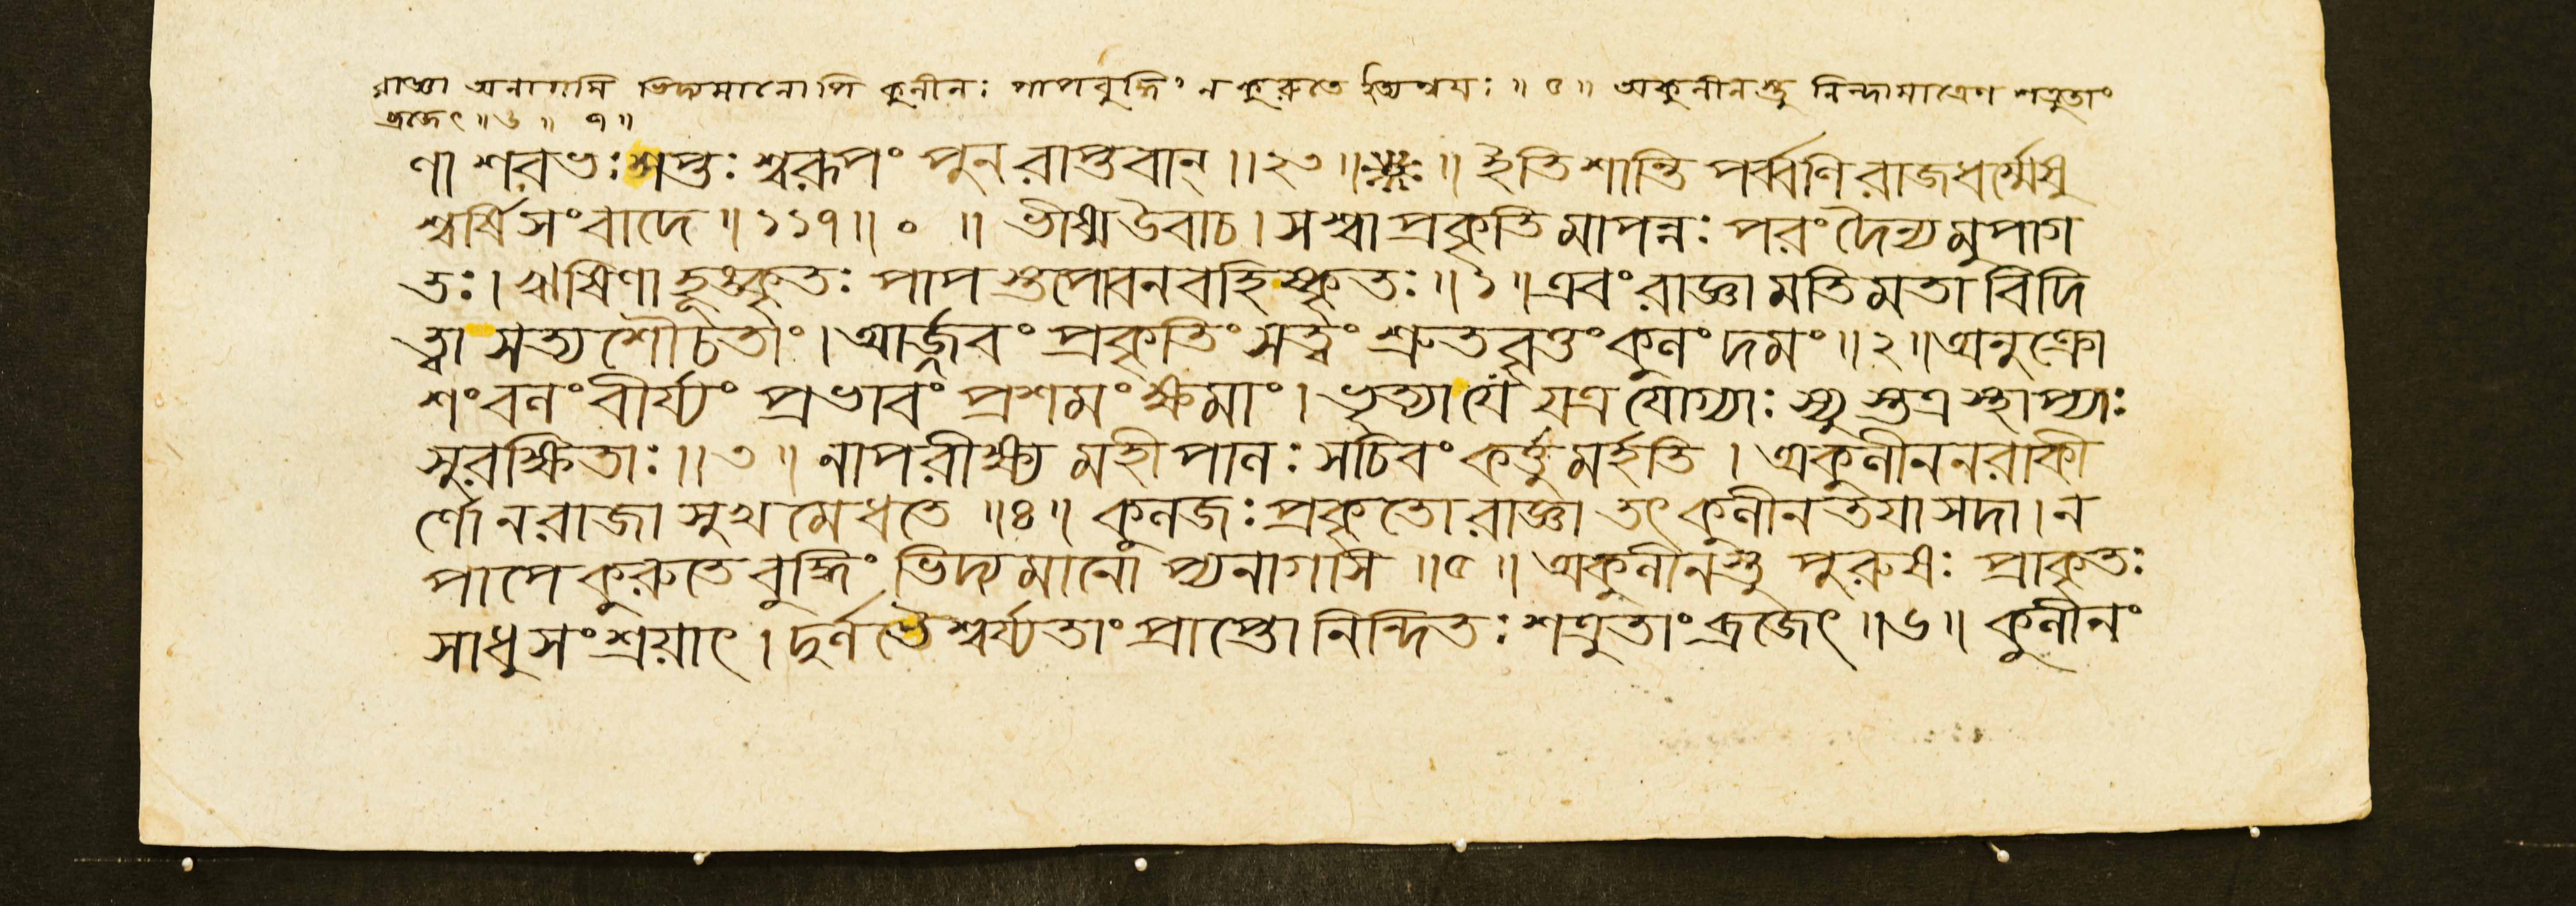 রাজ্ঞা অনাগসি ভিদ্যমানোপি কুলীনঃ পাপবুদ্ধিং ন কুরুতে ইত্যন্বয়ঃ ॥ ৫ ॥ অকুলীনস্তু নিন্দামাত্রেণ শত্রুতাং
ব্রজেৎ ॥ ৬ ॥ ৭ ॥
ণা শরভঃ শপ্তঃ শ্বরূপং পুনরাপ্তবান্ ॥ ২৩ ॥ ॥ ইতি শান্তিপর্ব্বণি রাজধর্ম্মেষু
শ্বর্ষিসংবাদে ॥ ১১৭ ॥ ० ॥ ভীষ্ম উবাচ । স শ্বা প্রকৃতিমাপন্নঃ পরং দৈন্যমুপাগ
তঃ । ঋষিণা হূঙ্কৃতঃ পাপস্তপোবনবহিষ্কৃতঃ ॥ ১ ॥ এবং রাজ্ঞা মতিমতা বিদি
ত্বা সত্যশৌচতাং । আর্জ্জবং প্রকৃতিং সত্ত্বং শ্রুতবৃত্তং কুলং দমং ॥ ২ ॥ অনুক্রো
শং বলং বীর্য্যং প্রভাবং প্রশমং ক্ষমাং । ভৃত্যা যে যত্র যোগ্যাঃ স্যুস্তত্র স্থাপ্যাঃ
সুরক্ষিতাঃ ॥ ৩ ॥ নাপরীক্ষ্য মহীপালঃ সচিবং কর্ত্তুমর্হতি । অকুলীননরাকী
র্ণো ন রাজা সুখমেধতে ॥ ৪ ॥ কুলজঃ প্রকৃতো রাজ্ঞা তৎকুলীনতয়া সদা । ন
পাপে কুরুতে বুদ্ধিং ভিদ্যমানোপ্যনাগসি ॥ ৫ ॥ অকুলীনস্তু পুরুষঃ প্রাকৃতঃ
সাধুসংশ্রয়াৎ । দুর্লভৈশ্বর্য্যতাং প্রাপ্তো নিন্দিতঃ শত্রুতাং ব্রজেৎ ॥ ৬ ॥ কুলীনং